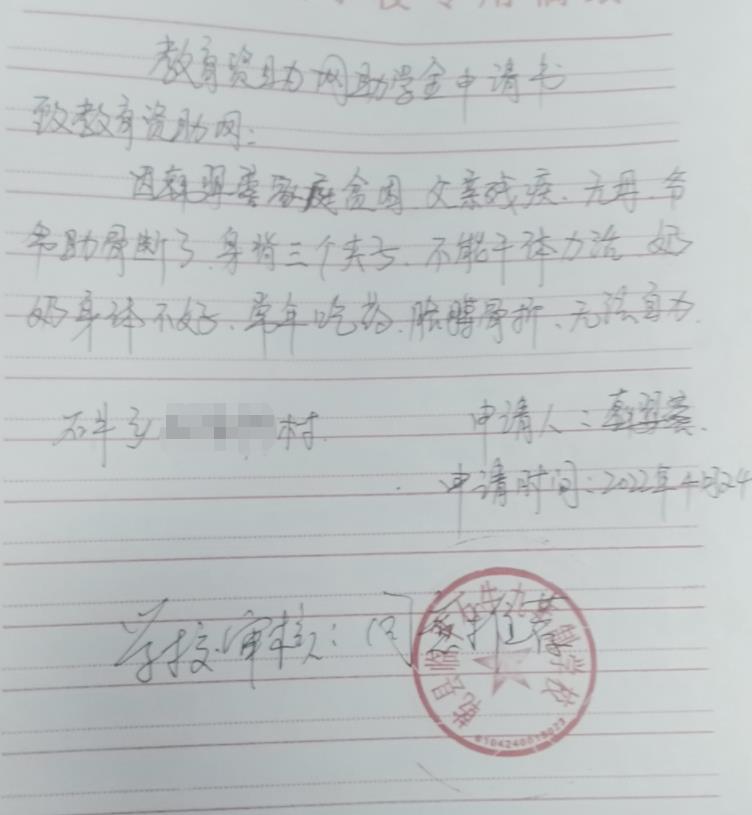 教育资助网助学金申请书
致教育资助网:
因 家庭贫困 父亲残疾、无母 爷
爷肋骨断了、身背三个夹子、不能干体力活 奶
奶身体不好、常年吃药、胳膊骨折、无法自力
石牛乡 村
申请人:
申请时间:2022年4月24
学校审核:同
6104240018022